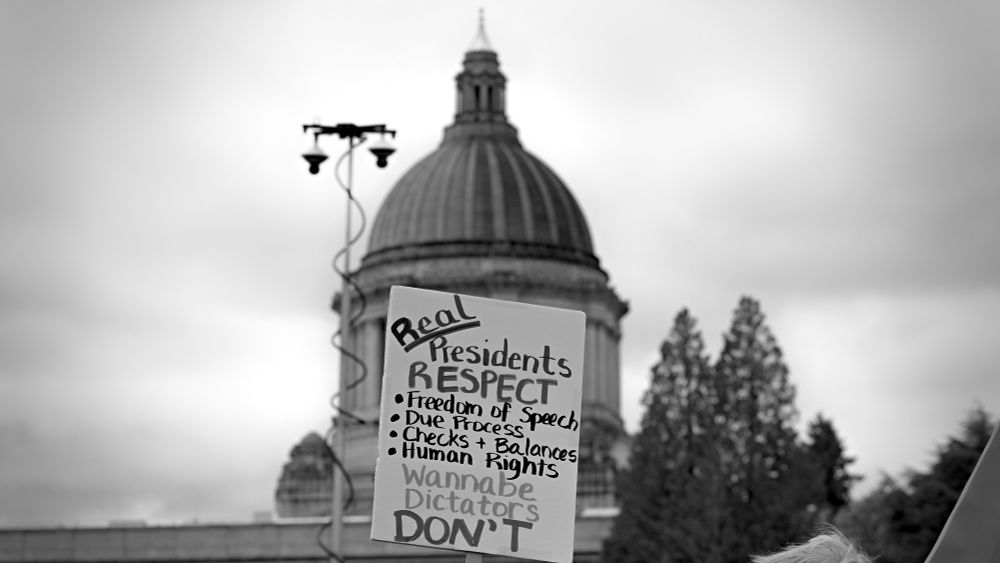 Real
Presidents
RESPECT
• Freedom of Speech
• Due Process
• Checks + Balances
• Human Rights
Wannabe
Dictators
DON'T